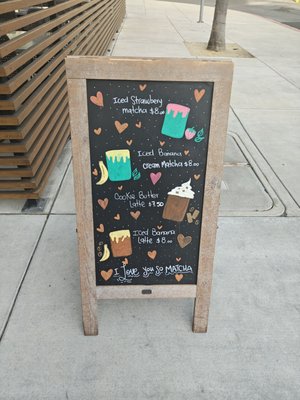 Iced Strawberry
matcha $8.00
Iced Banana
cream Matcha $8.00
Cookie Butter
Latte $7.50
Iced Banana
Latte $8.00
I Love you SO MATCHA